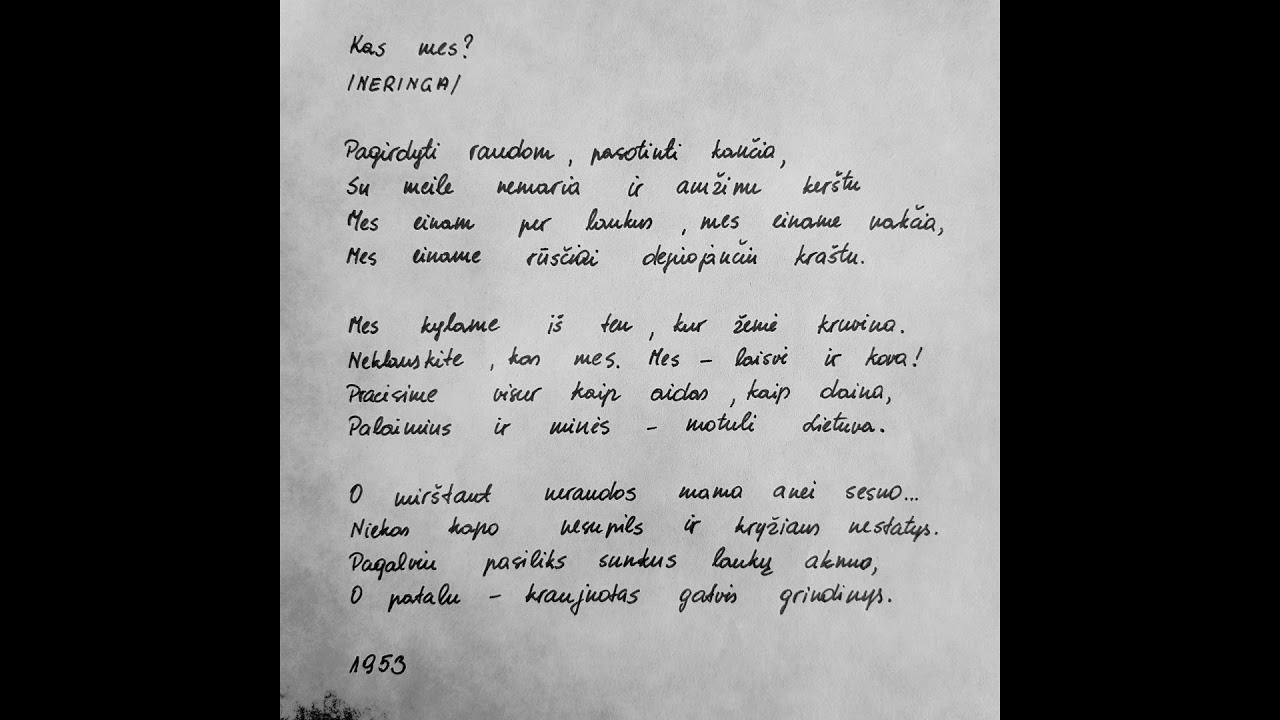 Kas mes?
/NERINGA/
Pagirdyti raudom, pasotinti kančia,
Su meile nemaria ir amžinu kerštu
Mes einam per laukus, mes einame nakčia,
Mes einame rūsčiai dejuojančiu kraštu.
Mes kylame iš ten, kur žemė kruvina.
Neklauskite, kas mes. Mes – laisvė ir kova!
Praeisime visur kaip aidas, kaip daina,
Palaimins ir minės – motuli Lietuva.
O mirštant neraudos mama anei sesuo...
Niekas kapo nesupils ir kryžiaus nestatys.
Pagalviu pasiliks sunkus laukų akmuo,
O patalu – kraujuotas gatvės grindinys.
1953